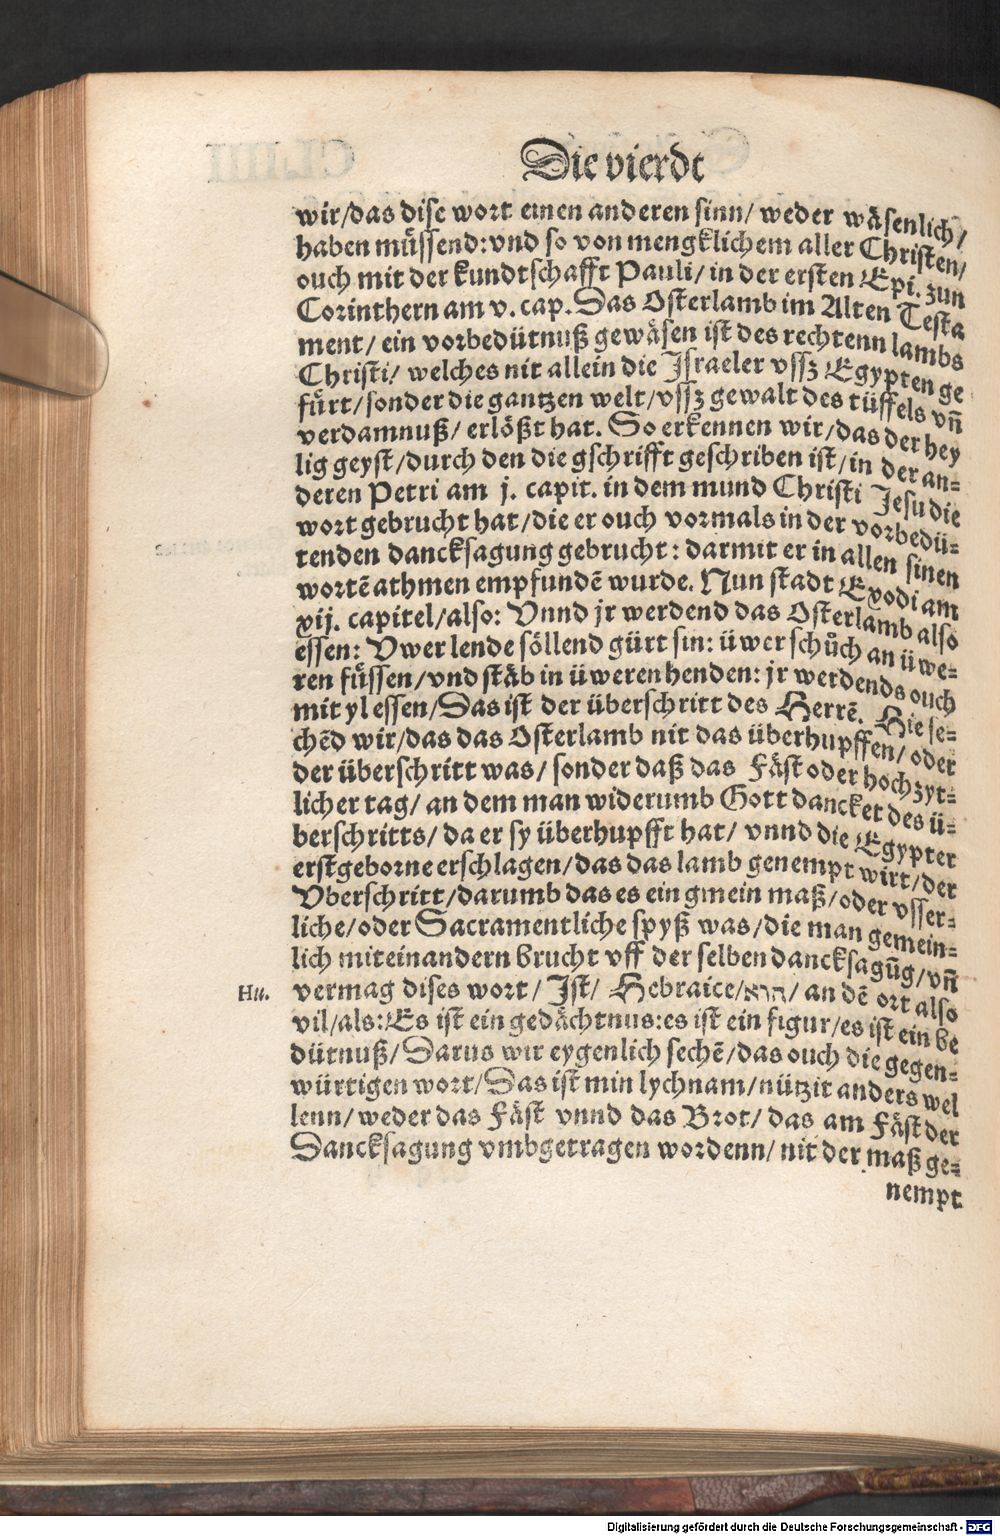 Die vierdt
wir/das dise wort einen anderen sinn/ weder wäsenlich/
haben müssend: vnd so von mengklichem aller Christen/
ouch mit der kundtschafft Pauli/ in der ersten Epi. zun
Corinthern am v. cap. Das Osterlamb im Alten Testa
ment/ ein vorbedütnuß gewäsen ist des rechtenn lambs
Christi/ welches nit allein die Jsraeler vssz Egypten ge
fürt/sonder die gantzen welt/vssz gewalt des tüffels vñ
verdamnuß/ erlößt hat. So erkennen wir/das der hey
lig geyst/durch den die gschrifft geschriben ist/in der an-
deren Petri am j. capit. in dem mund Christi Jesu die
wort gebrucht hat/die er ouch vormals in der vorbedü-
tenden dancksagung gebrucht: darmit er in allen sinen
wortẽ athmen empfundẽ wurde. Nun stadt Exodi am
xij. capitel/also: Vnnd jr werdend das Osterlamb also
essen: Vwer lende söllend gürt sin: üwer schůch an üwe-
ren füssen/vnd stäb in üweren henden: jr werdends ouch
mit yl essen/Das ist der überschritt des Herrẽ. Hie se-
chẽd wir/das das Osterlamb nit das überhupffen/ oder
der überschritt was/ sonder daß das Fäst oder hochzyt-
licher tag/ an dem man widerumb Gott dancket des ü-
berschritts/ da er sy überhupfft hat/ vnnd die Egypter
erstgeborne erschlagen/das das lamb genempt wirt/der
Vberschritt/darumb das es ein gmein maß/oder vsser-
liche/oder Sacramentliche spyß was/die man gemein-
lich miteinandern brucht vff der selben dancksagũg/vñ
Hu. vermag dises wort/ Jst/ Hebraice/הוא/ an dẽ ort also
vil/als: Es ist ein gedächtnus: es ist ein figur/es ist ein be
dütnuß/Darus wir eygenlich sechẽ/das ouch die gegen-
würtigen wort/Das ist min lychnam/nützit anders wel
lenn/ weder das Fäst vnnd das Brot/ das am Fäst der
Dancksagung vmbgetragen wordenn/ nit der maß ge-
nempt
Digitalisierung gefördert durch die Deutsche Forschungsgemeinschaft - DFG